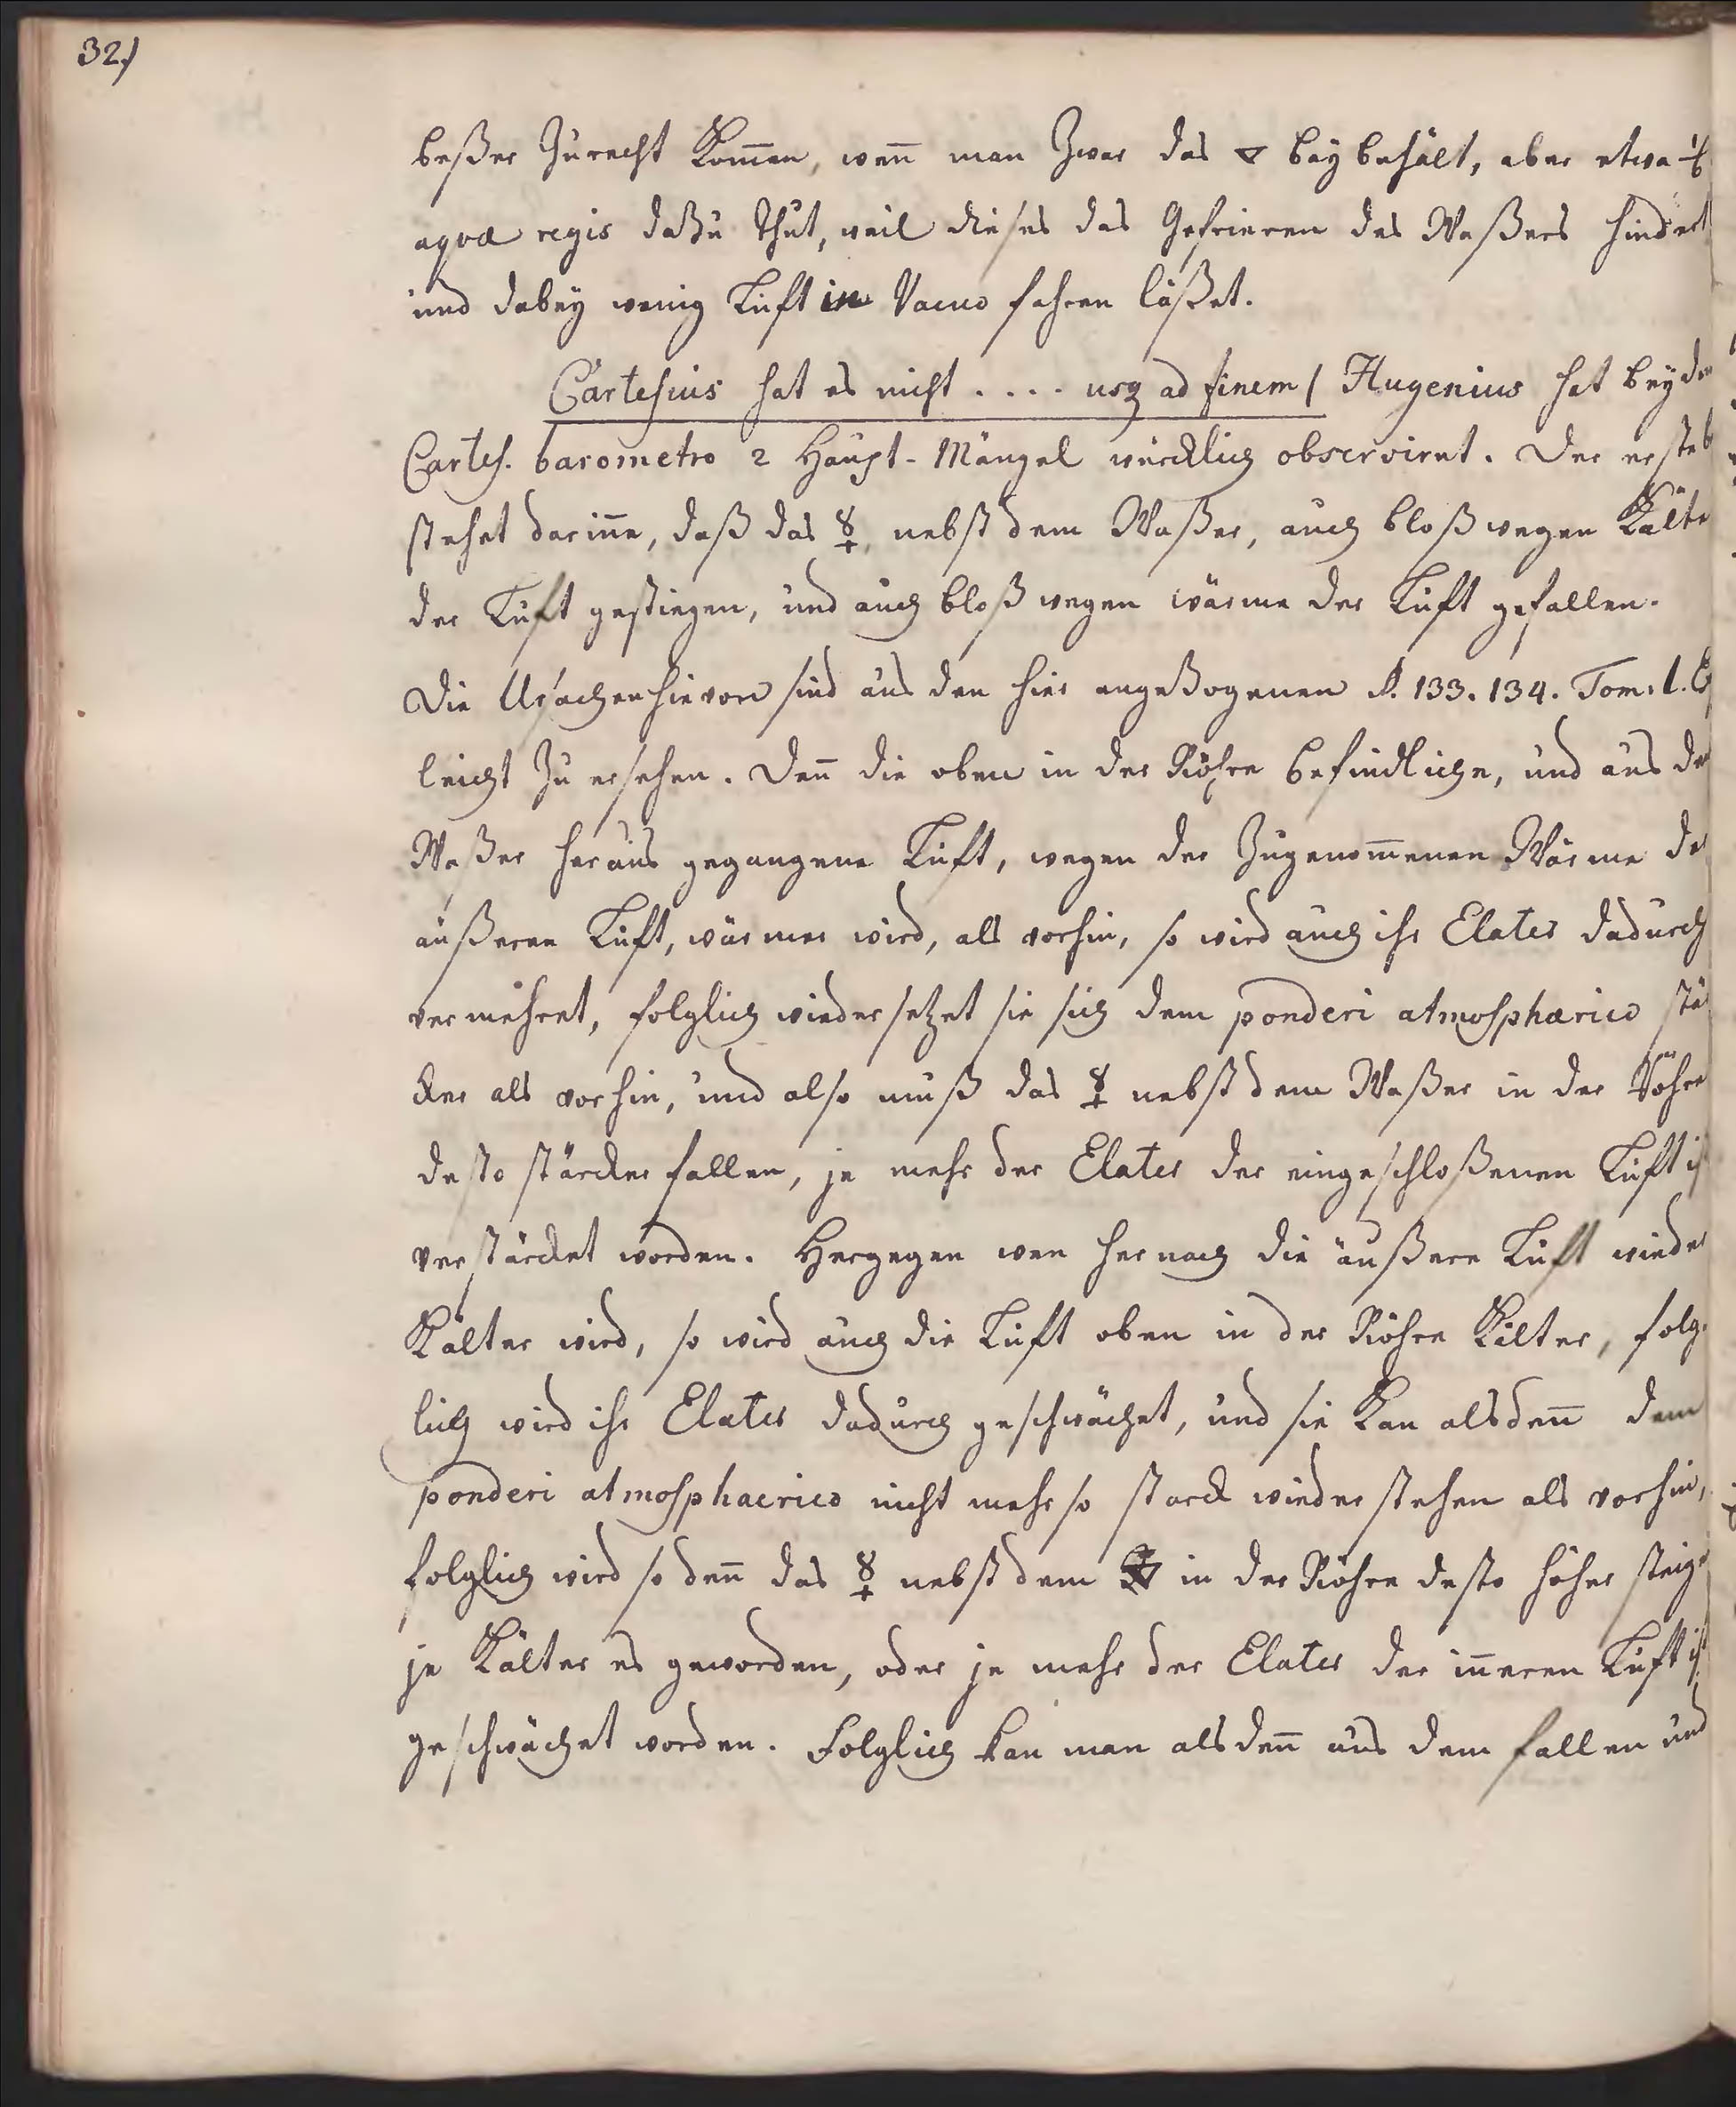 32.)
beßer Zurecht Kom̅en, wen̅ man Zwar das 🜄 beybehält, aber etwa ⅙
aqvæ regis daßu thut, weil dieses das Gefrieren des Waßers hindert
und dabey wenig Luft in Vacuo fahren läßet.
Cartesius hat es nicht .... usq ad finem / Hugenius hat bey dem
Cartes. barometro 2 Haupt-Mängel würcklich observiret. Der erste be
stehet darin̅e, daß das ☿ nebst dem Waßer, auch bloß wegen Kälte
der Luft gestiegen, und auch bloß wegen wärme der Luft gefallen.
Die Ursachen hievon sind aus den hier angeßogenen §. 133. 134. Tom. I.
leicht Zu ersehen. Den̅ die oben in der Röhre befindliche, und aus de
Waßer heraus gegangene Luft, wegen der Zugenom̅enen Wärme der
äußeren Luft, wärmer wird, als vorhin, so wird auch ihr Elater dadurch
vermehret, folglich wiedersetzet sie sich dem ponderi atmosphærico stär
cker als vorhin, und also muß das ☿ nebst dem Waßer in der Röhre
desto stärcker fallen, je mehr der Elater der eingeschloßenen Luft ist
verstärcket worden. Hergegen wen hernach die äußere Luft wieder
Kälter wird, so wird auch die Luft oben in der Röhre Kälter, folg-
lich wird ihr Elater dadurch geschwächet, und sie Kan alsden̅ dem
ponderi atmosphaerico nicht mehr so starck wiederstehen als vorhin,
folglich wird so den̅ das ☿ nebst dem 🜄 in der Röhre desto höher steige
je Kälter es geworden, oder je mehr der Elater der in̅eren Luft ist
geschwächet worden. Folglich kan man alsden̅ aus dem fallen und